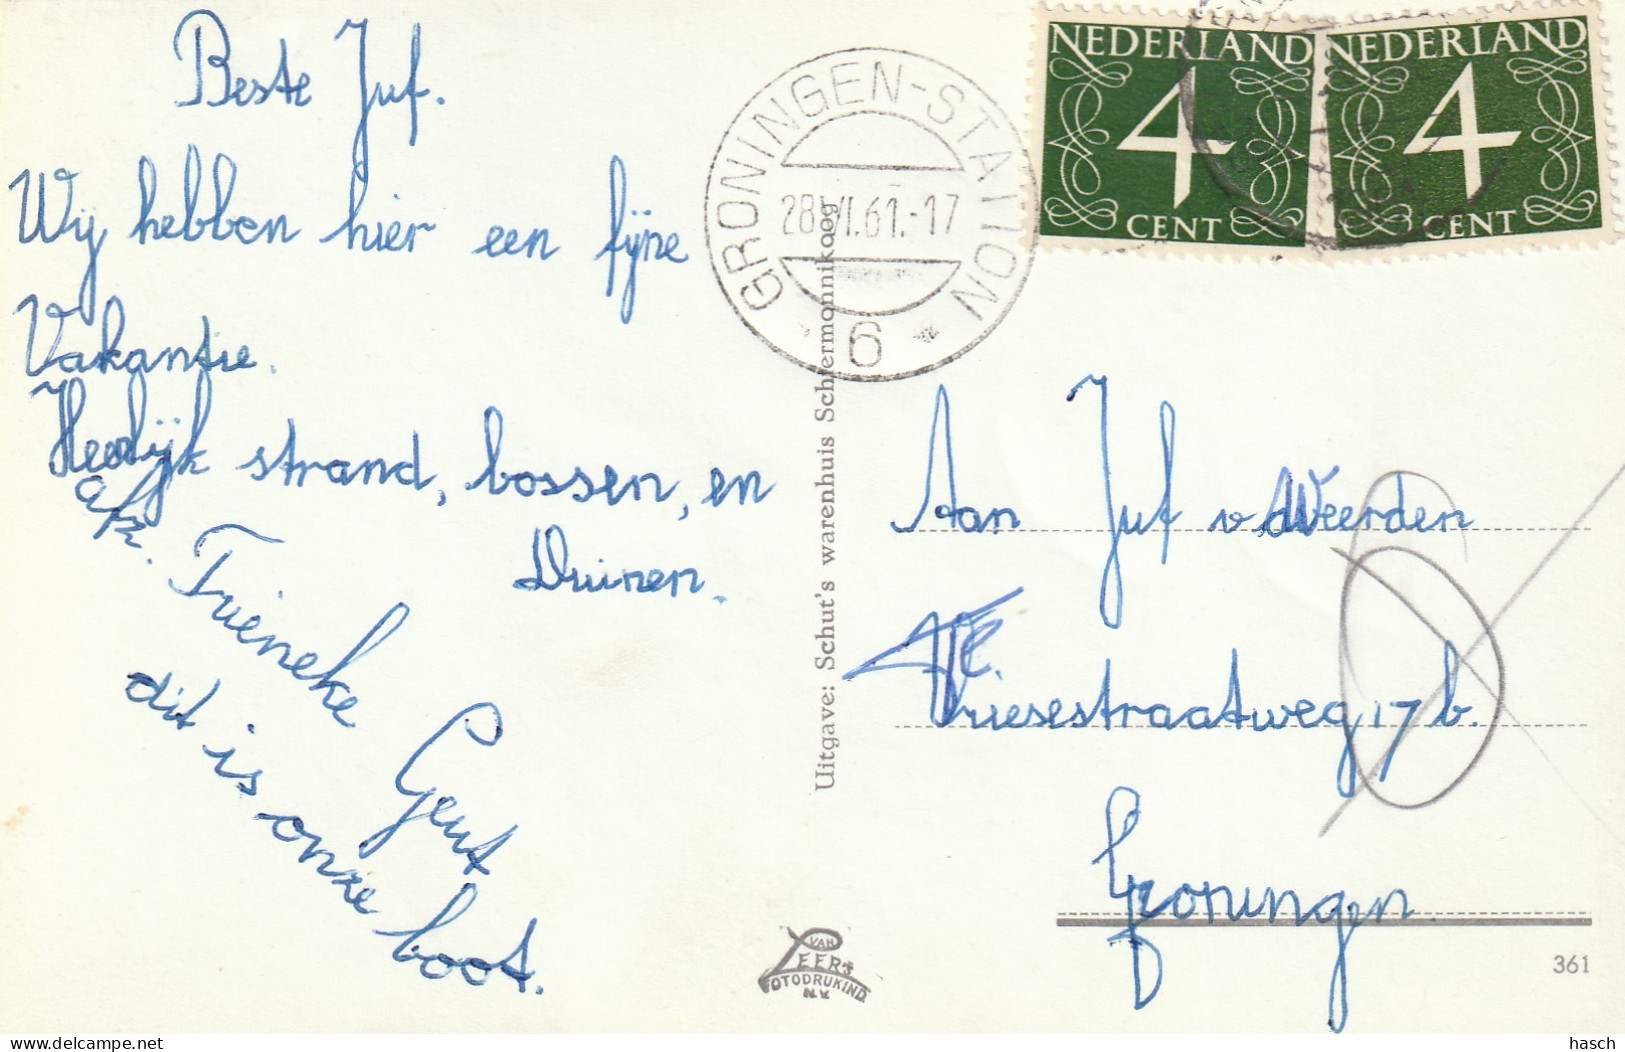 Beste Juf.
Wij hebben hier een fijne
Vakantie.
Heerlijk strand, bossen, en
Duinen.
afz. Trieneke Gerrit
dit is onze boot.
Uitgave: Schut's warenhuis Schiermonnikoog
GRONINGEN-STATION
28 VI.61.-17
6
NEDERLAND
4
CENT
NEDERLAND
4
CENT
Aan Juf v d Weerden
Vriesestraatweg 17 b.
Groningen.
VAN
LEER'S
FOTODRUKIND.
N.V.
361
delcampe.net
hasch